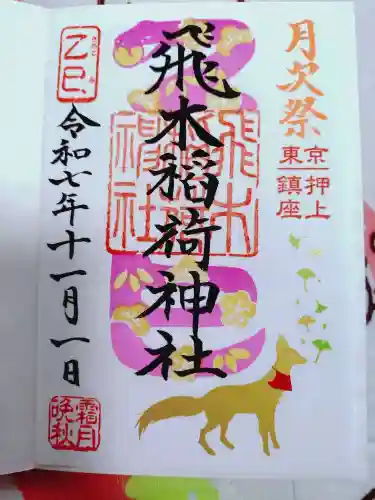 月次祭
東京押上鎮座
飛木稲荷神社
飛木稲荷神社
乙巳
きのと み
令和七年十一月一日
霜月
晩秋